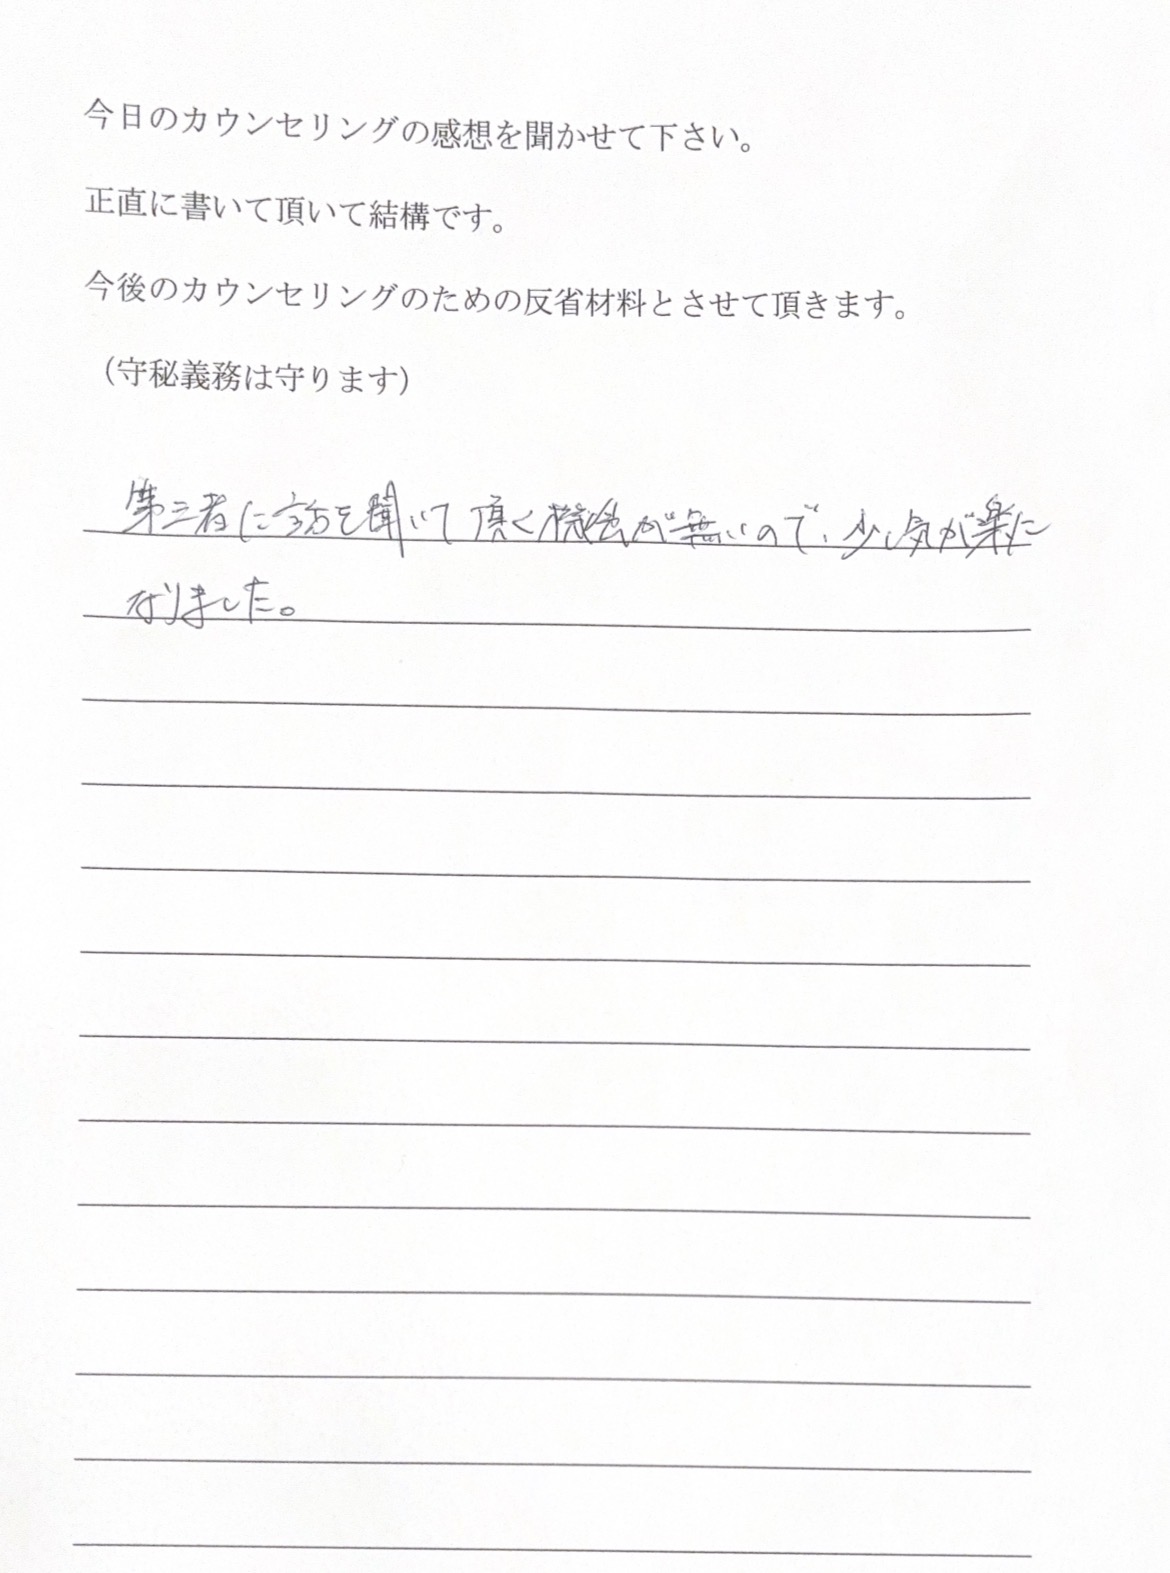 今日のカウンセリングの感想を聞かせて下さい。
正直に書いて頂いて結構です。
今後のカウンセリングのための反省材料とさせて頂きます。
（守秘義務は守ります）
第三者に話を聞いて頂く機会が無いので、少し気が楽に
なりました。